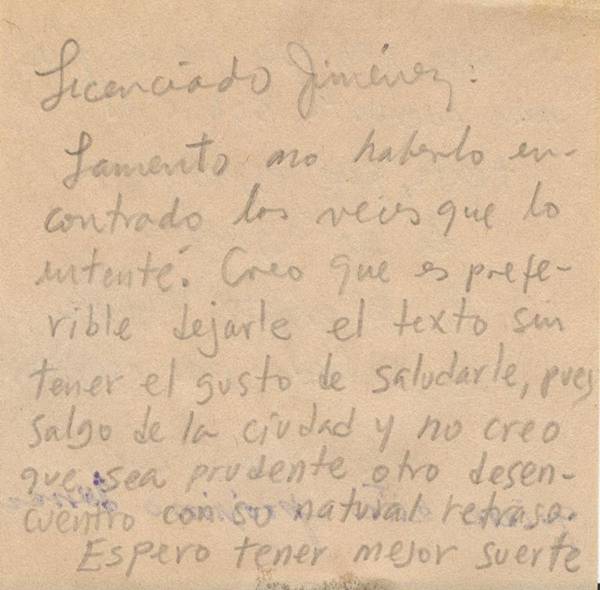 Licenciado Jiménez:
Lamento no haberlo en-
contrado las veces que lo
intenté. Creo que es prefe-
rible dejarle el texto sin
tener el gusto de saludarle, pues
salgo de la ciudad y no creo
que sea prudente otro desen-
cuentro con su natural retraso.
Espero tener mejor suerte